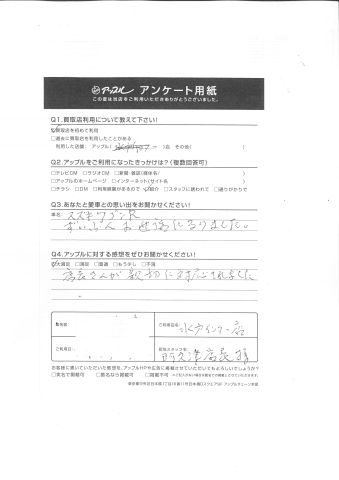 アップル アンケート用紙
この度は当店をご利用いただきありがとうございました。
Q1.買取店利用について教えて下さい!
☑買取店を初めて利用
□過去に買取店を利用したことがある
利用した店舗: アップル( )店 その他( )
Q2.アップルをご利用になったきっかけは?(複数回答可)
□テレビCM □ラジオCM □新聞・雑誌(媒体名 )
□アップルのホームページ □インターネット(サイト名 )
□チラシ □DM □利用経験があるので ☑紹介 □スタッフに誘われて □通りがかりで
Q3.あなたと愛車との思い出をお聞かせください!
車名: スズキワゴンR
ずいぶんお世話になりました。
Q4.アップルに対する感想をぜひお聞かせください!
☑大満足 □満足 □普通 □もう少し □不満
店長さんが親切に対応されました
お名前:
ご利用店名: 水戸インター店
ご利用日:
担当スタッフ名: 阿久津店長 様
お客様に書いていただいた感想を、アップルHPや広告に掲載させていただいてもよろしいでしょうか?
□実名で掲載可 □匿名なら掲載可 □掲載不可